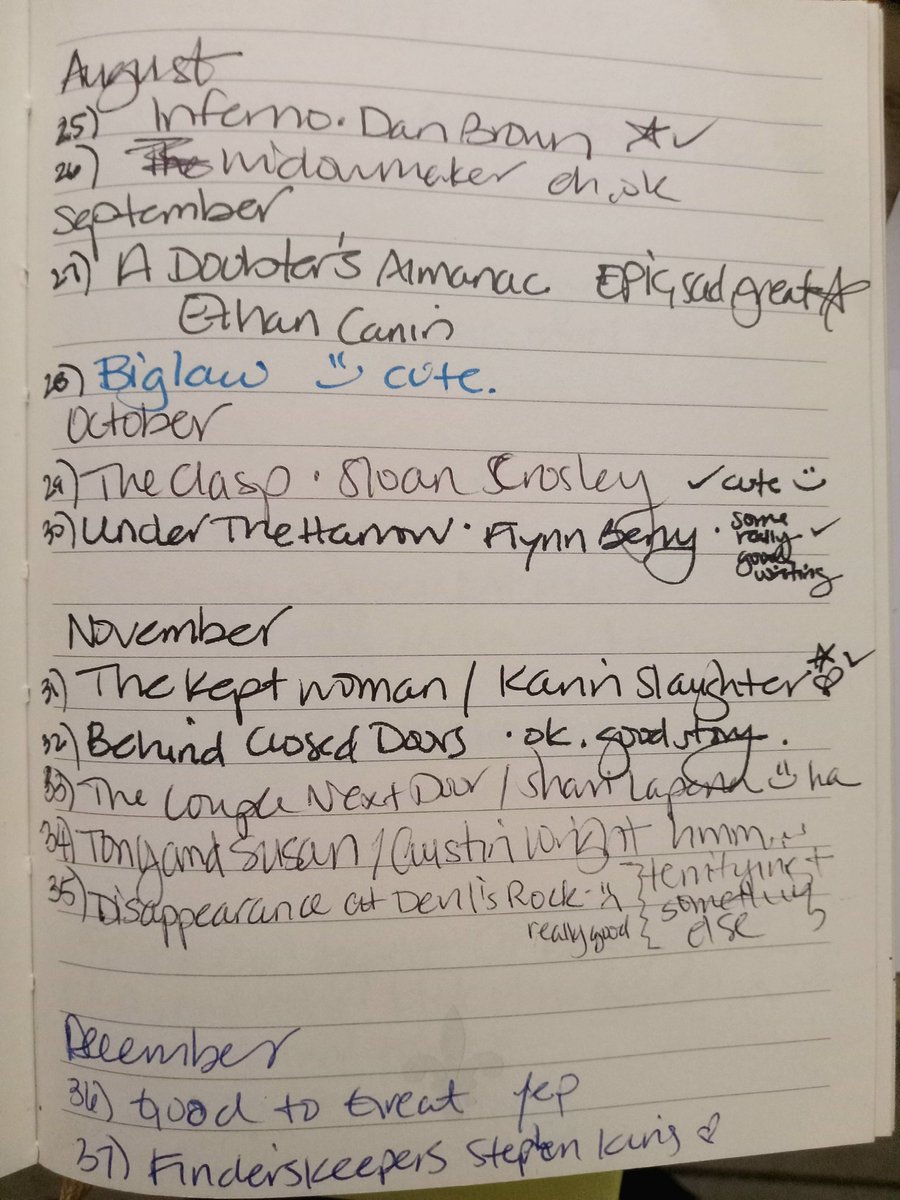 August
25) Inferno. Dan Brown ☆✓
26) The Widowmaker eh, ok
September
27) A Doubter's Almanac EPIC, sad great ☆
Ethan Canin
28) Biglaw ü cute.
October
29) The Clasp · Sloan Crosley ✓ cute ü
30) Under The Harrow · Flynn Berry · some really good writing ✓
November
31) The Kept Woman / Karin Slaughter ☆♡✓
32) Behind Closed Doors · ok. good story.
33) The Couple Next Door / Shari Lapena ü ha
34) Tony and Susan / Austin Wright hmm...
35) Disappearance at Devil's Rock really good } terrifying + something else
December
36) Good to Great yep
37) Finderskeepers Stephen King ♡